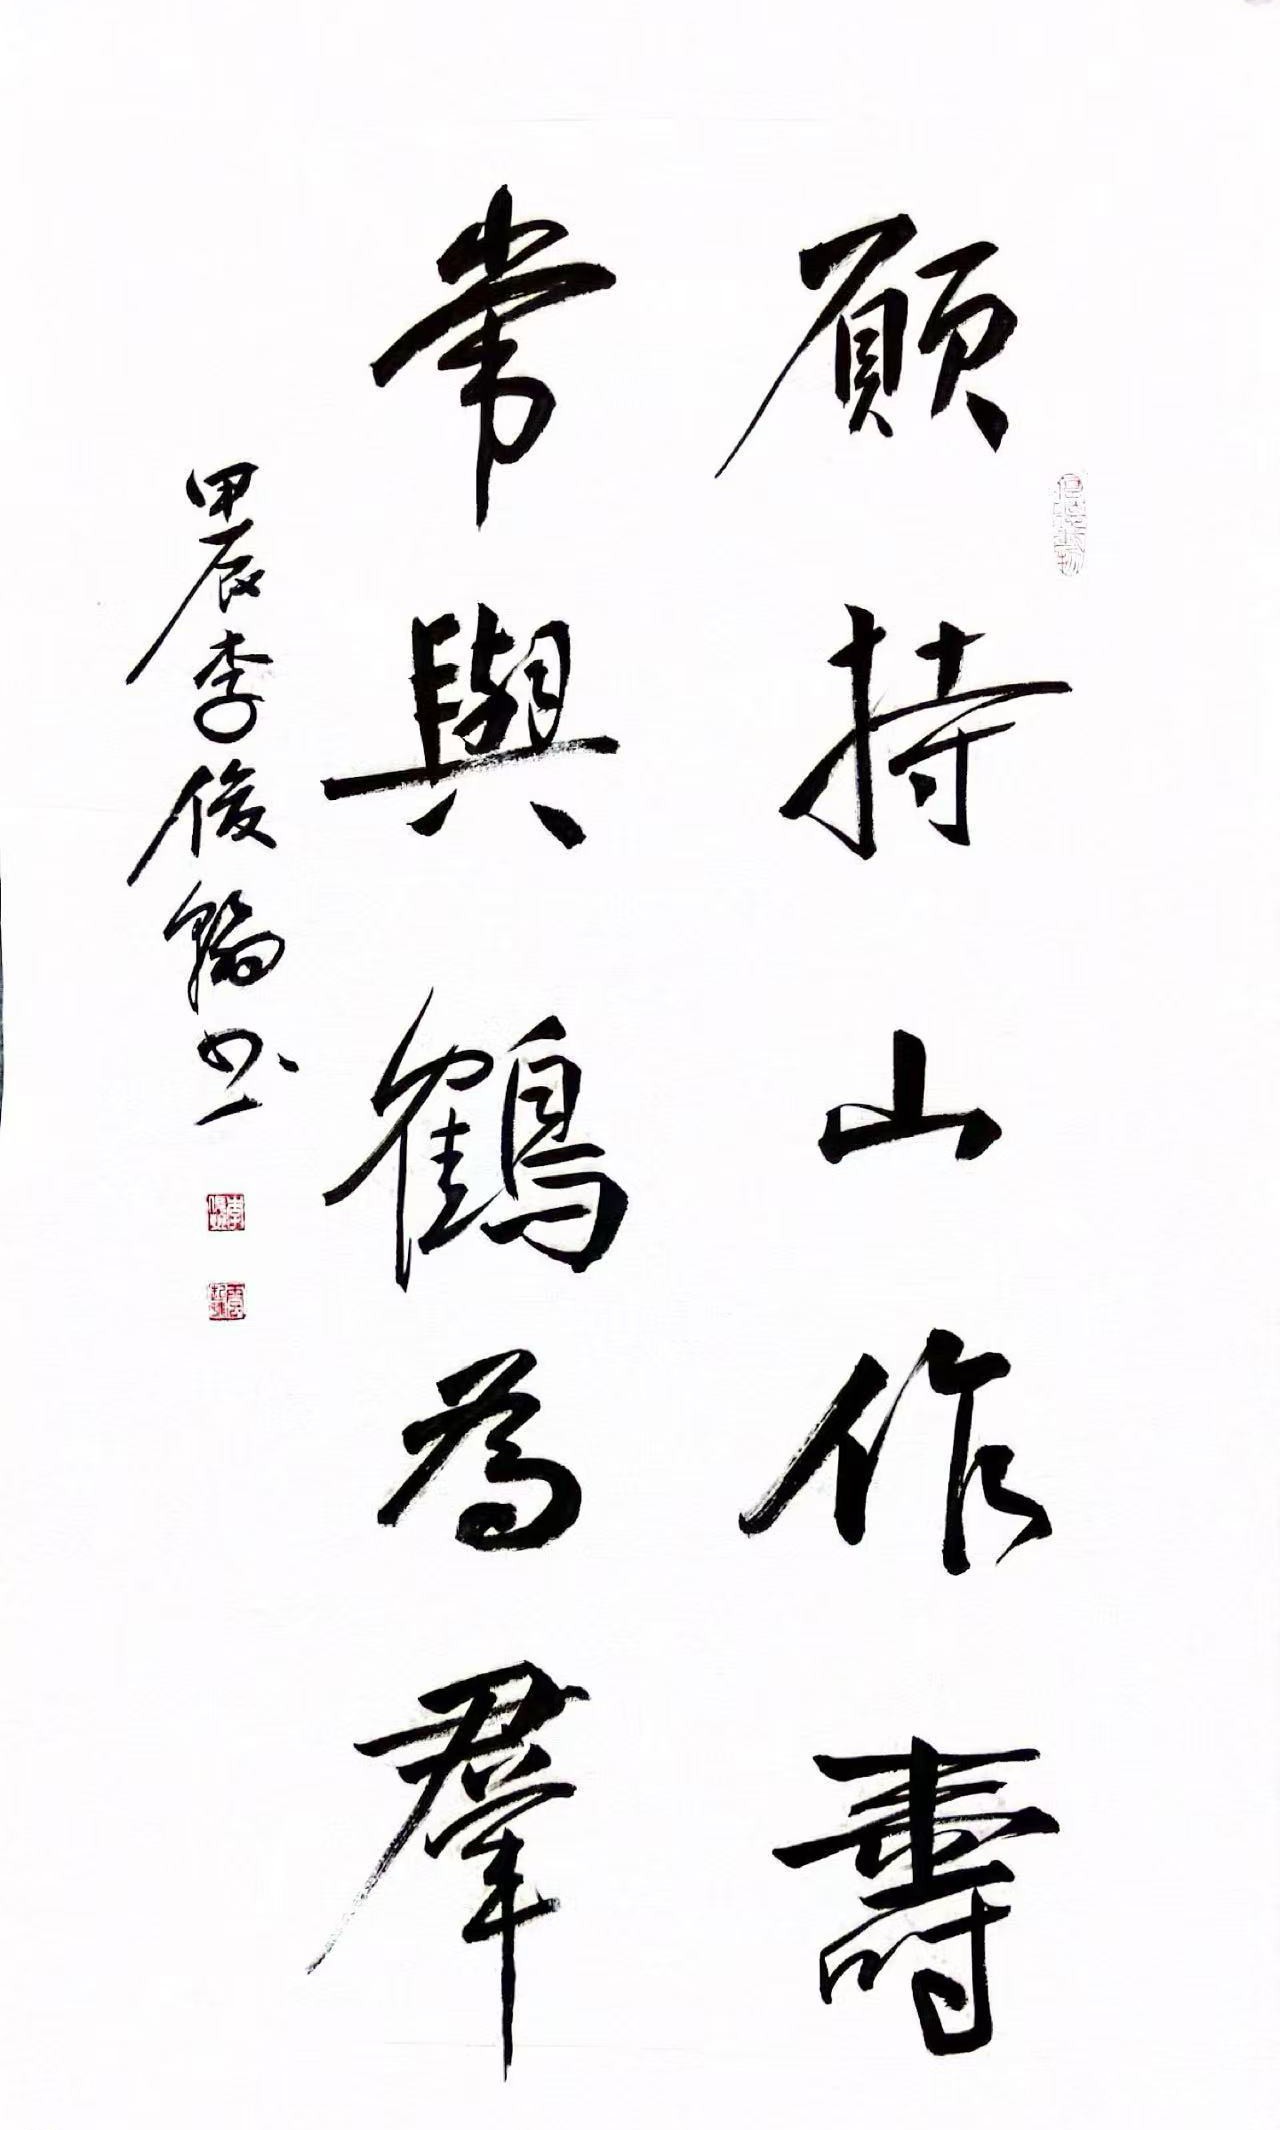 願持山作壽
常與鶴為羣
甲辰李俊翰书